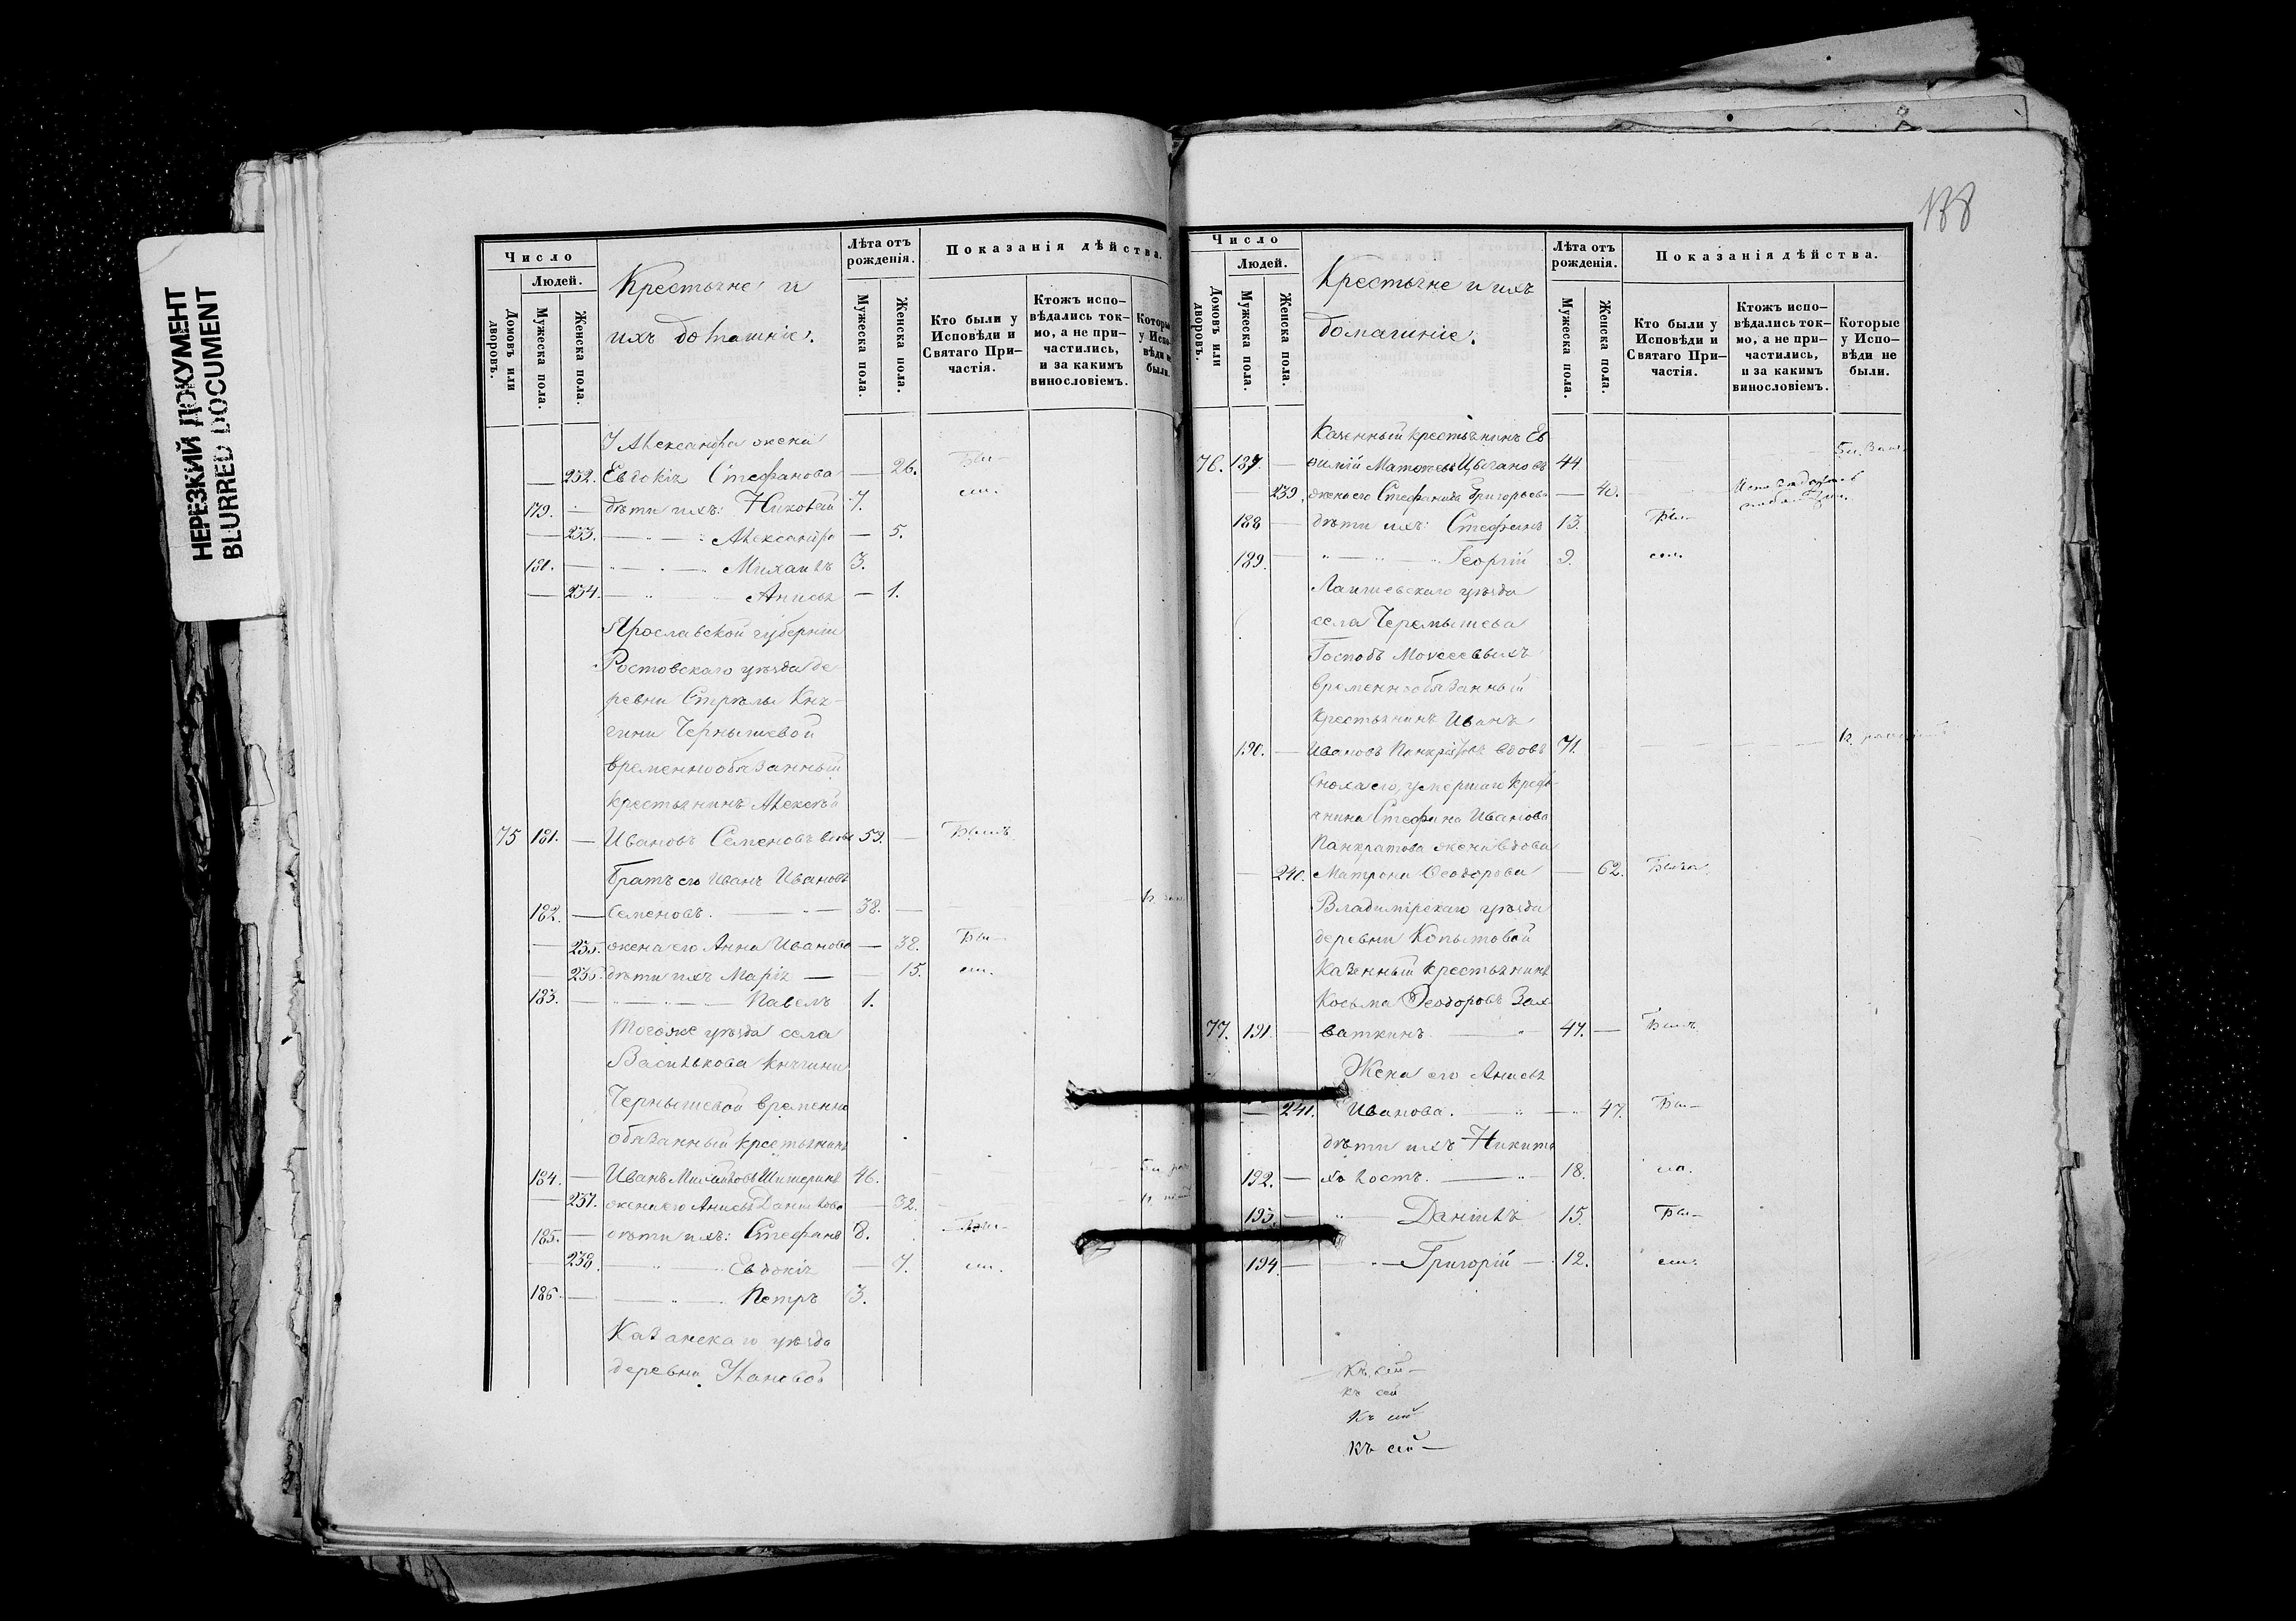 НЕРЕЗКИЙ ДОКУМЕНТ
BLURRED DOCUMENT
Число
Людей.
Домовъ или дворовъ.
Мужеска пола.
Женска пола.
Крестьяне и
ихъ домашніе.
Лѣта отъ рожденія.
Мужеска пола.
Женска пола.
Показанія дѣйства.
Кто были у Исповѣди и Святаго Причастія.
Ктожъ исповѣдались токмо, а не причастились, и за какимъ винословіемъ.
Которые у Исповѣди не были.
У Александра жена
232. Евдокія Стефанова — 26. Бы—
179. — дѣти ихъ: Николай 7. ли.
— 233. — Александра — 5.
180. — Михаилъ 3.
— 234. — Анисья — 1.
Ярославской губерніи
Ростовскаго уѣзда де-
ревни Стрѣлы Кня-
гини Чернышевой
временнообязанный
крестьянинъ Алексѣй
75 181. — Ивановъ Семеновъ вдовъ 59. — Былъ
Братъ его Иванъ Ивановъ
182. — Семеновъ. 38. —
— 235. жена его Анна Иванова — 38. Бы—
— 236. дѣти ихъ Марія — 15. ли.
183. — Павелъ 1.
Тогоже уѣзда села
Василькова Княгини
Чернышевой временно
обязанный крестьянинъ
184. — Иванъ Михайловъ 46.
— 237. жена его Анисья Данилова — 32.
185. — дѣти ихъ: Стефанъ 8. Бы—
— 238. — Евдокія — 7. ли.
186. — Петръ 3.
Казанскаго уѣзда
деревни
138
Число
Людей.
Домовъ или дворовъ.
Мужеска пола.
Женска пола.
Крестьяне и ихъ
домашніе.
Лѣта отъ рожденія.
Мужеска пола.
Женска пола.
Показанія дѣйства.
Кто были у Исповѣди и Святаго Причастія.
Ктожъ исповѣдались токмо, а не причастились, и за какимъ винословіемъ.
Которые у Исповѣди не были.
Казенный крестьянинъ Ев
76. 187. — фимій Матвеевъ Цыгановъ 44
— 239. жена его Стефанида Григорьева — 40.
188 — дѣти ихъ: Стефанъ 13. Бы—
189. — Георгій 9. ли.
Лаишевскаго уѣзда
села Черемышева
Господъ Моисеевыхъ
временнообязанный
крестьянинъ Иванъ
190. — Ивановъ Панкратовъ вдовъ 71.
Сноха его, умершаго кресть-
янина Стефана Иванова
Панкратова жена вдова
— 240. Матрона Ѳеодорова — 62. Была
Владимірскаго уѣзда
деревни Копытовой
казенный крестьянинъ
Косьма Ѳеодоровъ Зах-
77. 191. — ваткинъ 47. — Былъ
Жена его Анисья
— 241. Иванова. — 47. Бы—
дѣти ихъ Никита
192. — холостъ. 18. ли.
193. — Даніилъ 15. Бы—
194. — Григорій — 12. ли.
Къ сей—
къ сей
Къ сей
Къ сей—